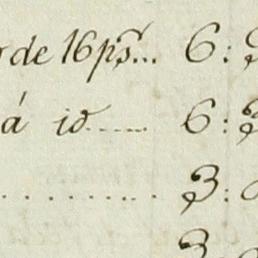 de 16 p.s... 6:
á id...... 6:
............ 3:
3